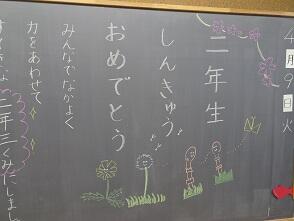 4月9日火
二年生
しんきゅう
おめでとう
みんなでなかよく
力をあわせて
すてきな二年三くみにしまし